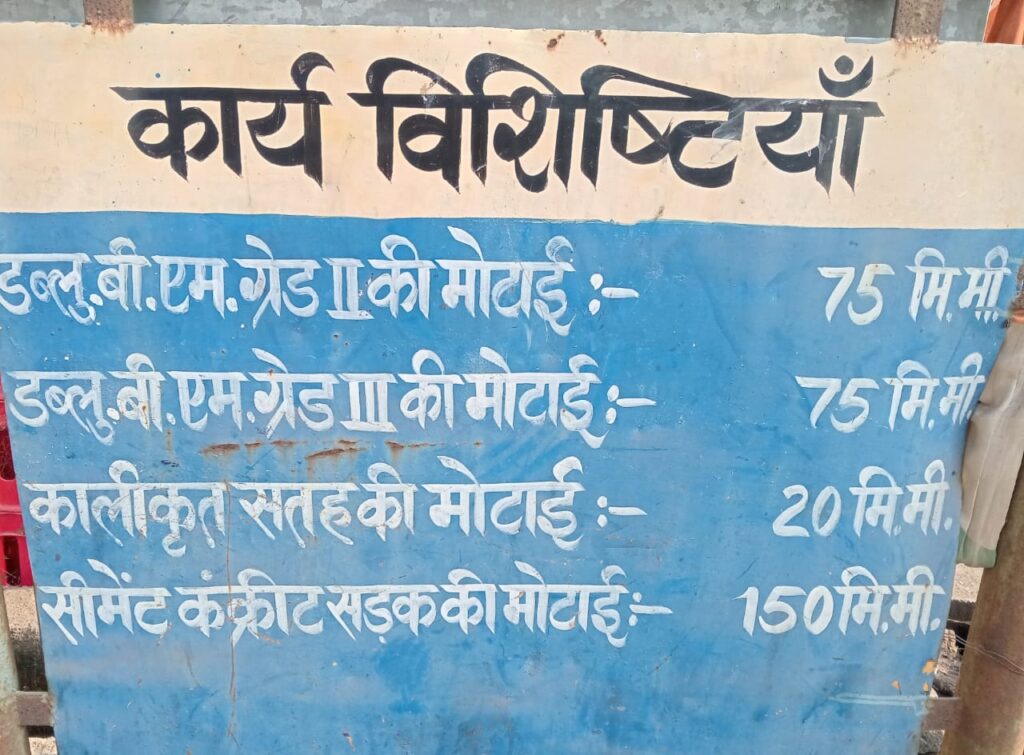 कार्य विशिष्टियाँ
डब्लु.बी.एम.ग्रेड II की मोटाई :- 75 मि.मी.
डब्लु.बी.एम.ग्रेड III की मोटाई :- 75 मि.मी.
कालीकृत सतह की मोटाई :- 20 मि.मी.
सीमेंट कंक्रीट सड़क की मोटाई :- 150 मि.मी.